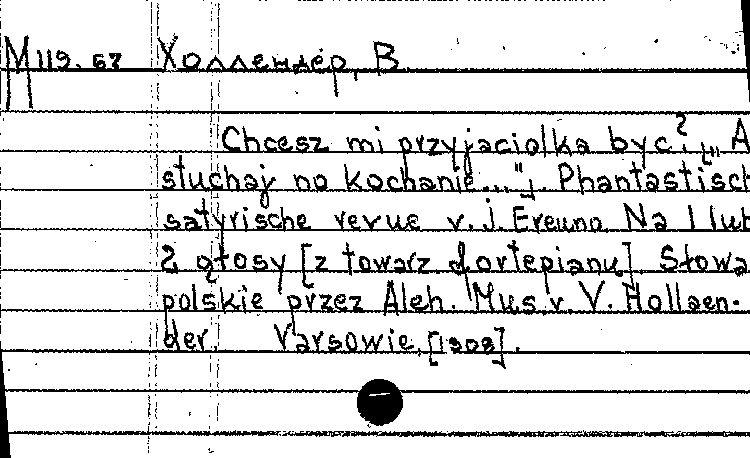 М 119.67 Холлендер, В.
Chcesz mi przyjaciolka byc? [„A
słuchaj no kochanie..."]. Phantastisch
satyrische revue v. J. Freund. Na 1 lub
2 głosy [z towarz. fortepianu]. Słowa
polskie przez Aleh. Mus. v. V. Hollaen-
der. Varsowie, [1908].